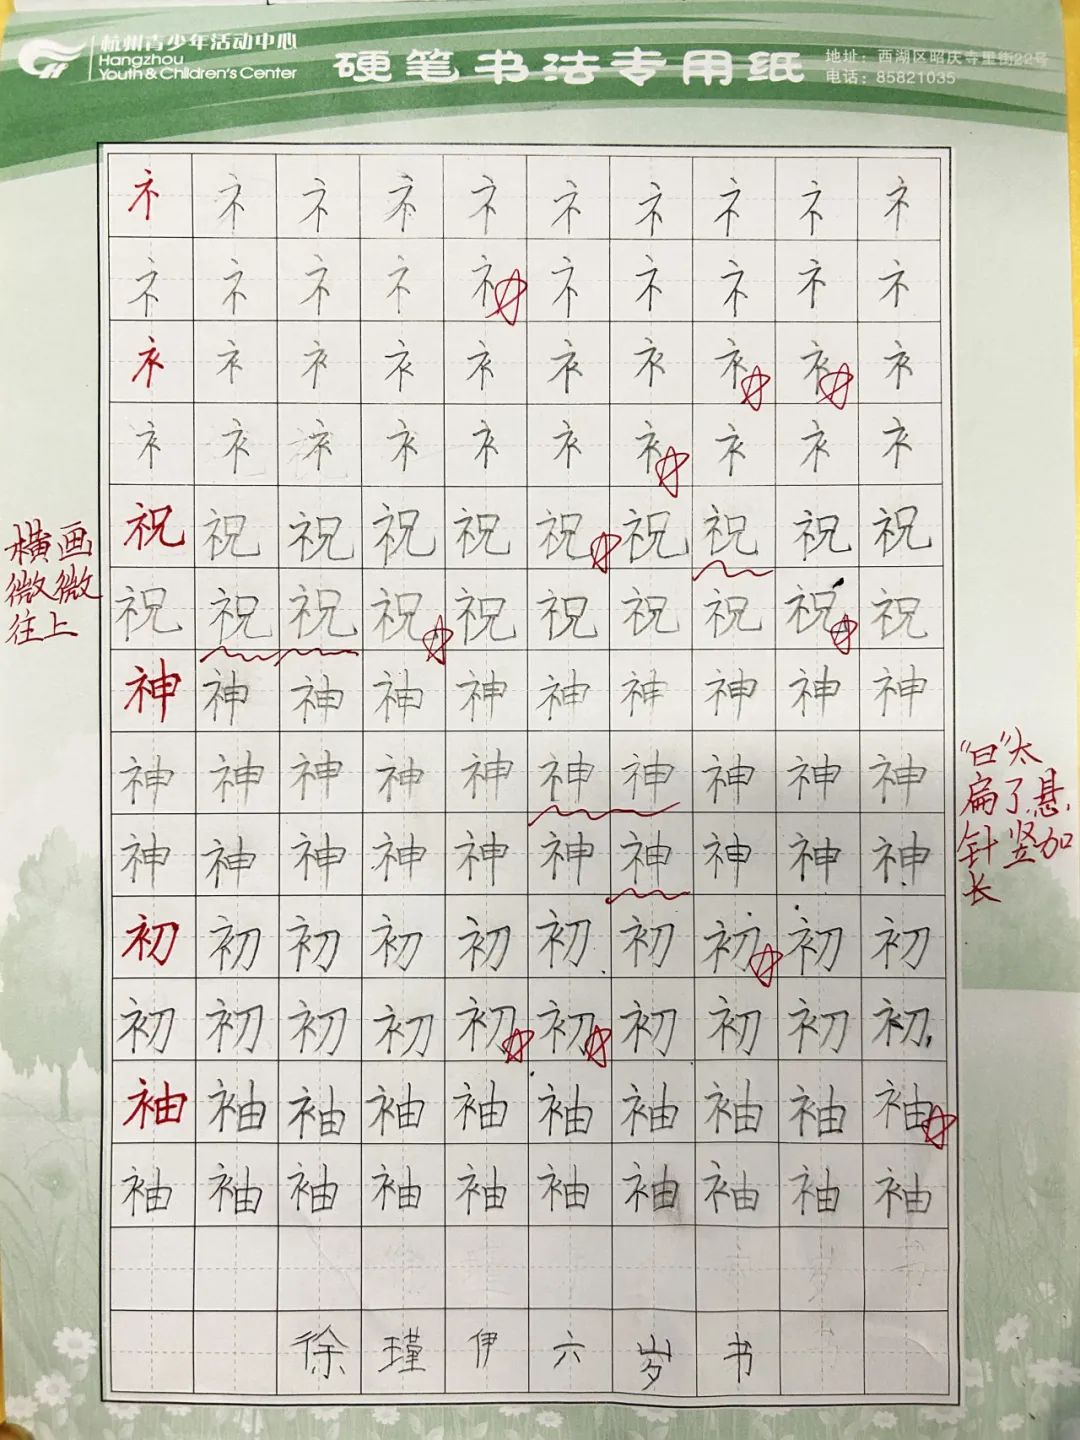 杭州青少年活动中心
Hangzhou
Youth & Children's Center
硬笔书法专用纸
地址：西湖区昭庆寺里街22号
电话：85821035
礻礻礻礻礻礻礻礻礻礻
礻礻礻礻礻礻礻礻礻礻
衤衤衤衤衤衤衤衤衤衤
衤衤衤衤衤衤衤衤衤衤
祝祝祝祝祝祝祝祝祝祝
祝祝祝祝祝祝祝祝祝祝
横画
微微
往上
神神神神神神神神神神
神神神神神神神神神神
神神神神神神神神神神
"曰"太
扁了.悬
针竖加
长
初初初初初初初初初初
初初初初初初初初初初
袖袖袖袖袖袖袖袖袖袖
袖袖袖袖袖袖袖袖袖袖
徐瑾伊六岁书